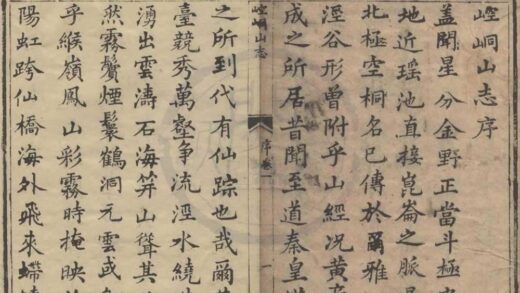 崆峒山志序
蓋聞星分金野正當斗極
地近瑶池直接崑崙之脈
北極空桐名已傳於爾雅
涇谷形曾附乎山經况黄
成之所居昔聞至道秦皇
崆峒山志
序
一
之所到代有仙踪也哉爾
臺競秀萬壑争流涇水繞
湧出雲濤石海笄山聳其
然霧鬢煙鬟鶴洞元雲或
乎緱嶺鳳山彩霧時掩映
陽虹跨仙橋海外飛來